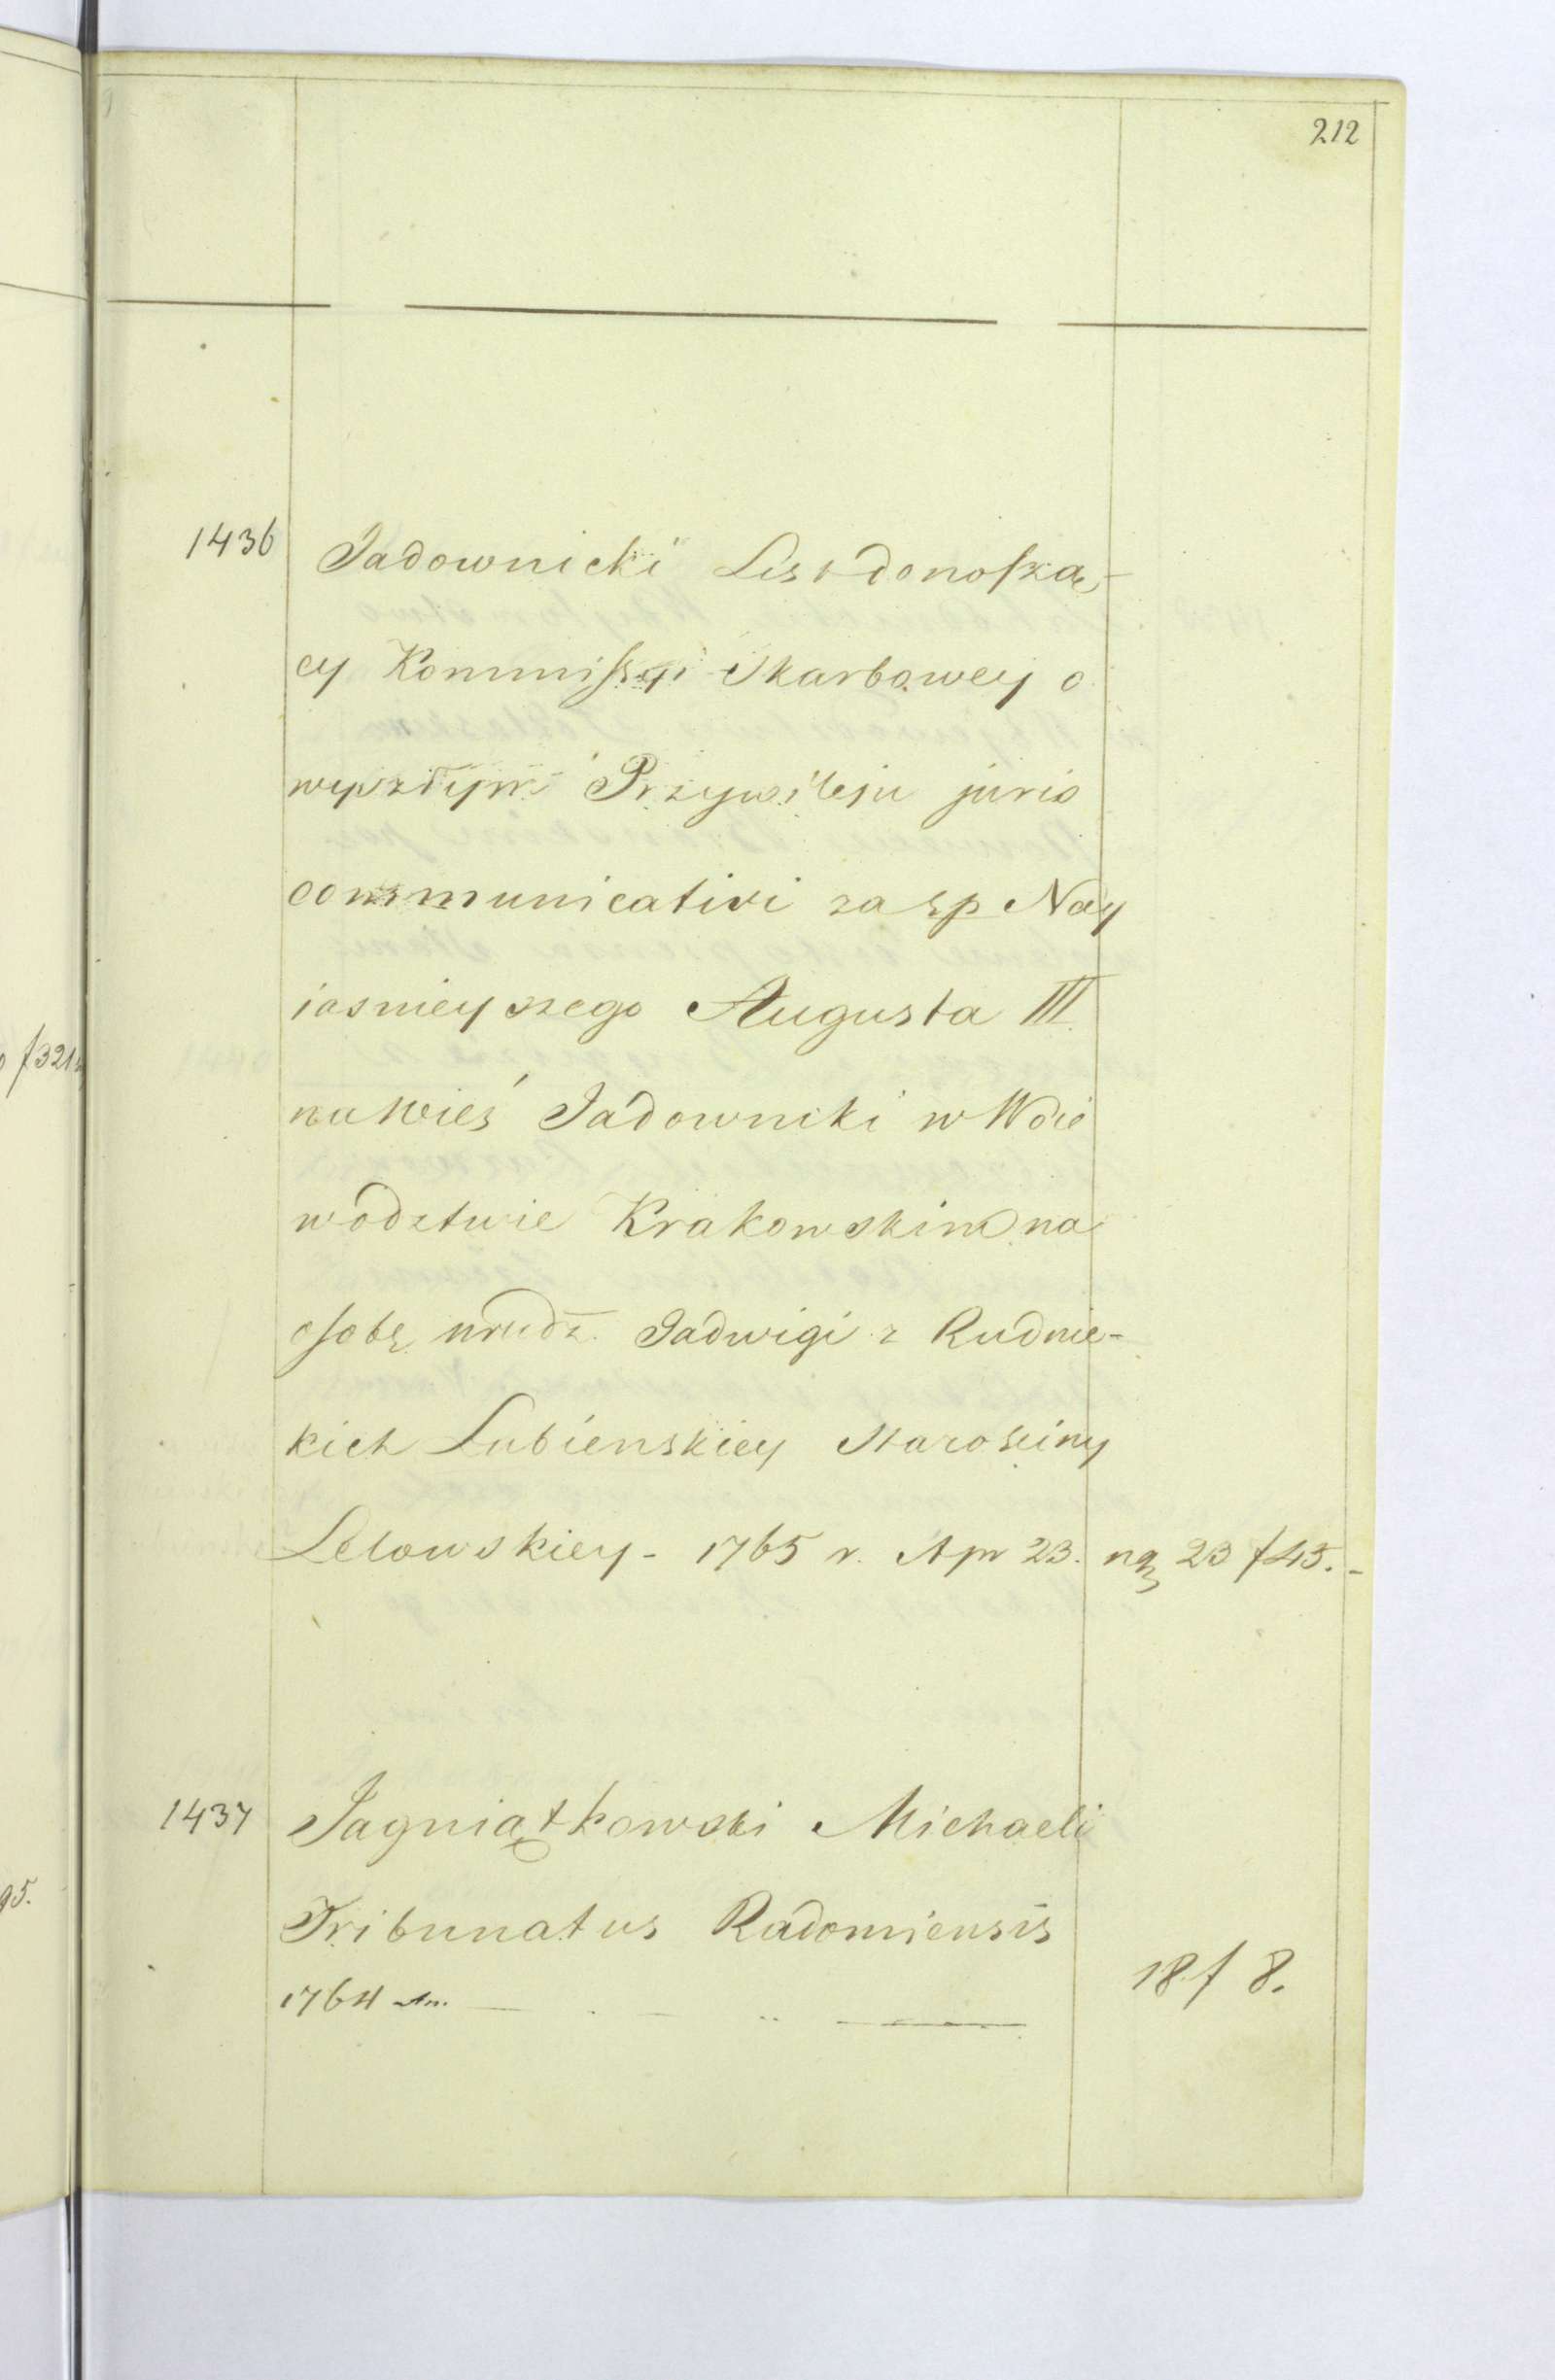 212
1436 Jadownicki List donoszą-
cy Kommissyi Skarbowey o
wyszłym Przywileju juris
communicativi za sp Nay
iasnieyszego Augusta III
na Wieś Jadowniki w Woie
wodztwie Krakowskim na
osobę urodz. Jadwigi z Rudnic-
kich Lubienskiey Starosciny
Lelowskiey - 1765 r. Apr 23. 23 f 45. -
1437 Jagniątkowski Michaeli
Tribunatus Radomiensis
1764 An. 18 f 8.
f 321
95.